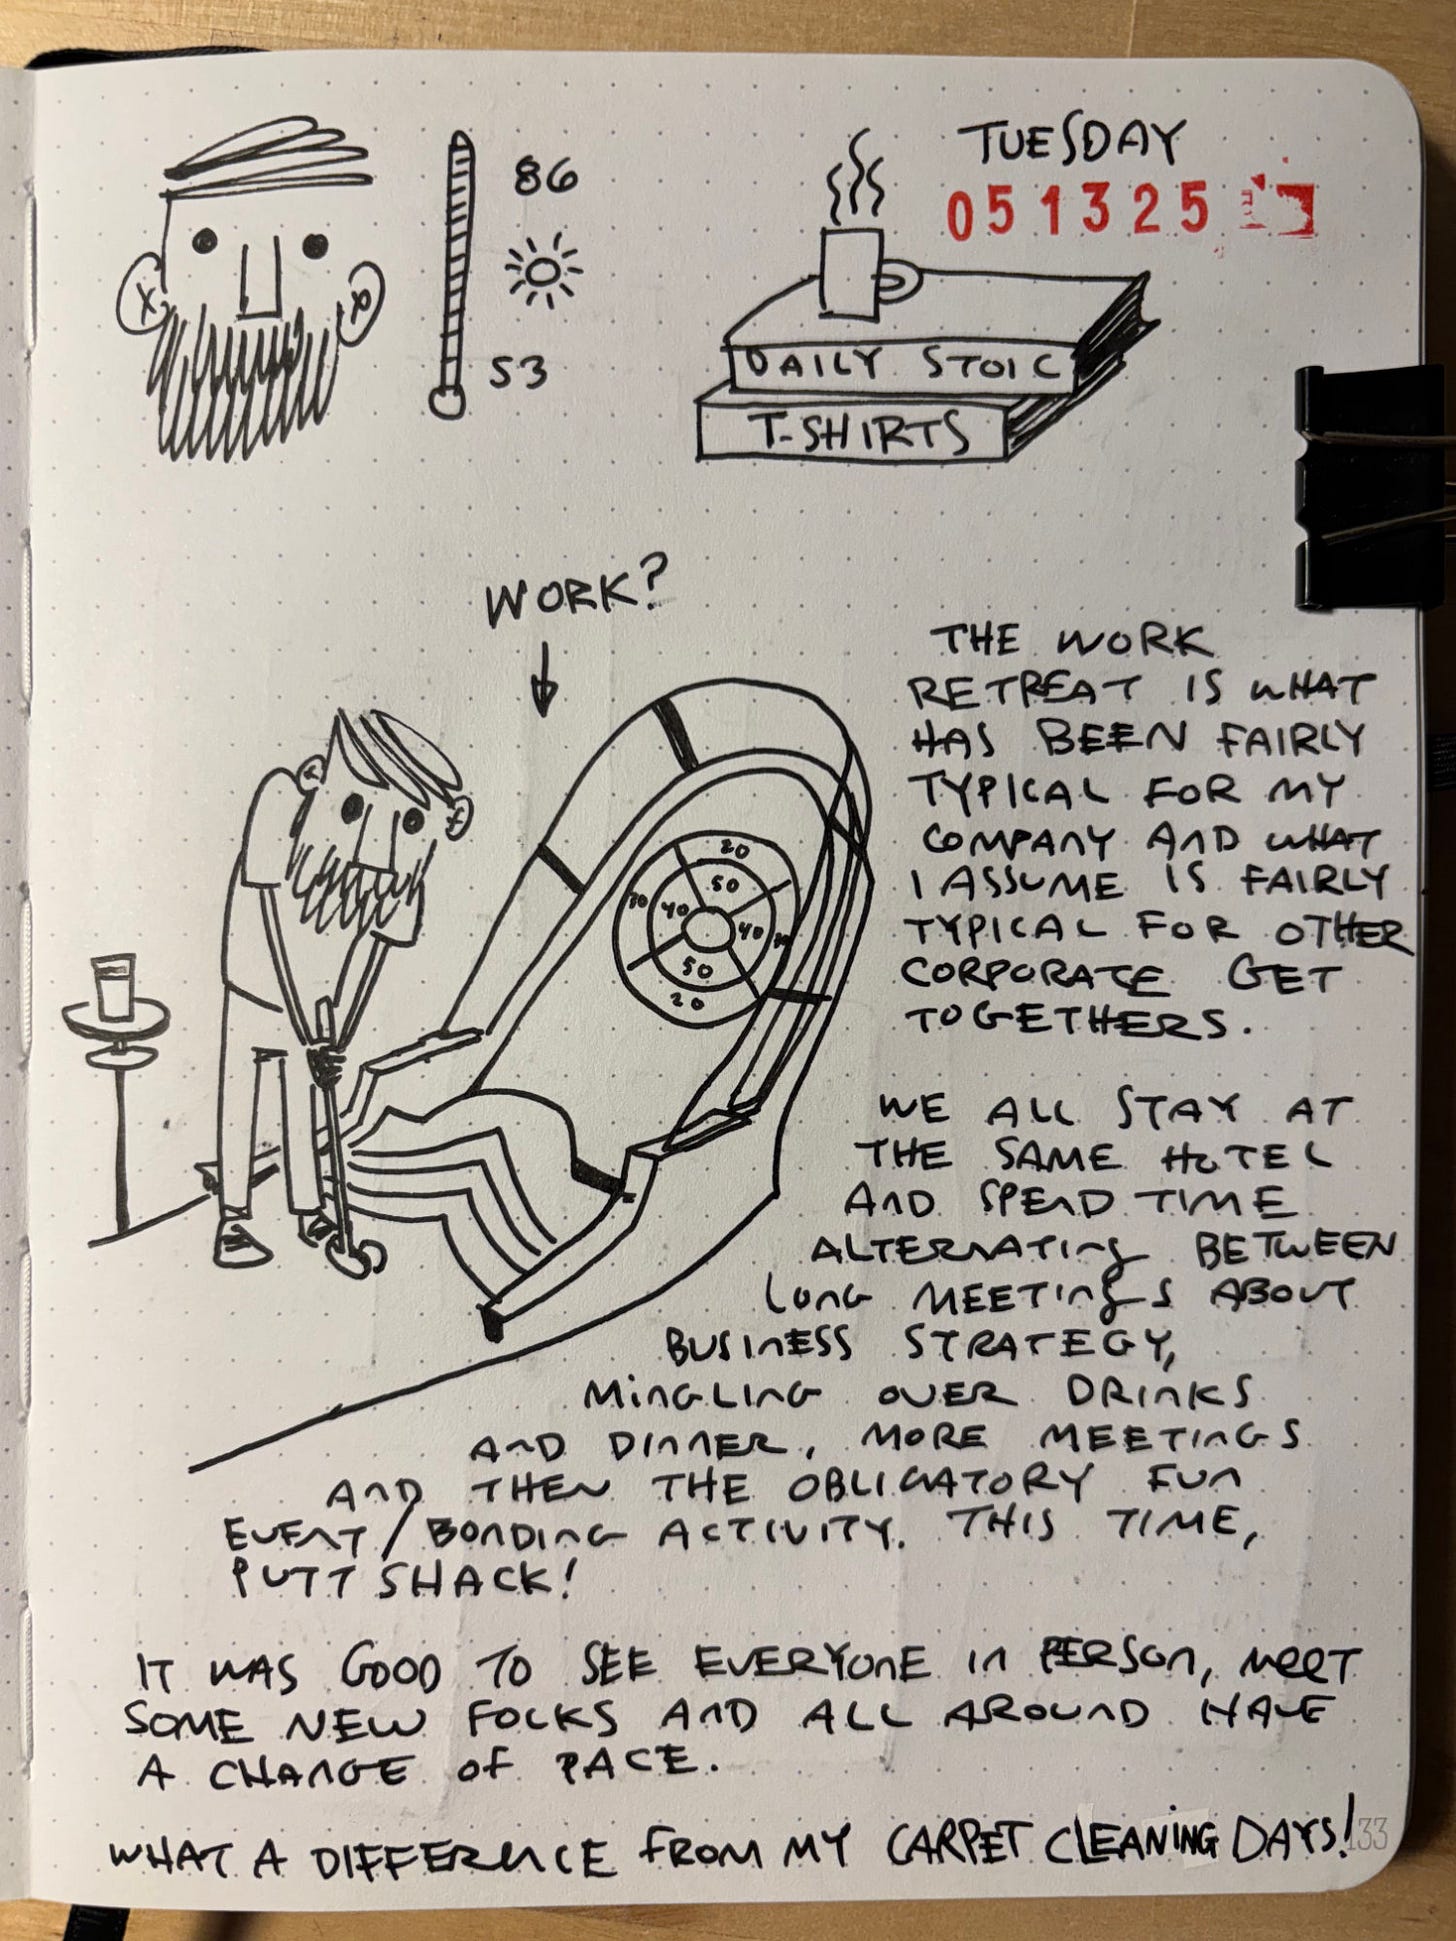 TUESDAY
051325
86
53
DAILY STOIC
T-SHIRTS
WORK?
20
50
10
40
40
50
20
THE WORK
RETREAT IS WHAT
HAS BEEN FAIRLY
TYPICAL FOR MY
COMPANY AND WHAT
I ASSUME IS FAIRLY
TYPICAL FOR OTHER
CORPORATE GET
TOGETHERS.
WE ALL STAY AT
THE SAME HOTEL
AND SPEND TIME
ALTERNATING BETWEEN
LONG MEETINGS ABOUT
BUSINESS STRATEGY,
MINGLING OVER DRINKS
AND DINNER, MORE MEETINGS
AND THEN THE OBLIGATORY FUN
EVENT/BONDING ACTIVITY. THIS TIME,
PUTT SHACK!
IT WAS GOOD TO SEE EVERYONE IN PERSON, MEET
SOME NEW FOLKS AND ALL AROUND HAVE
A CHANGE OF PACE.
WHAT A DIFFERENCE FROM MY CARPET CLEANING DAYS!
133